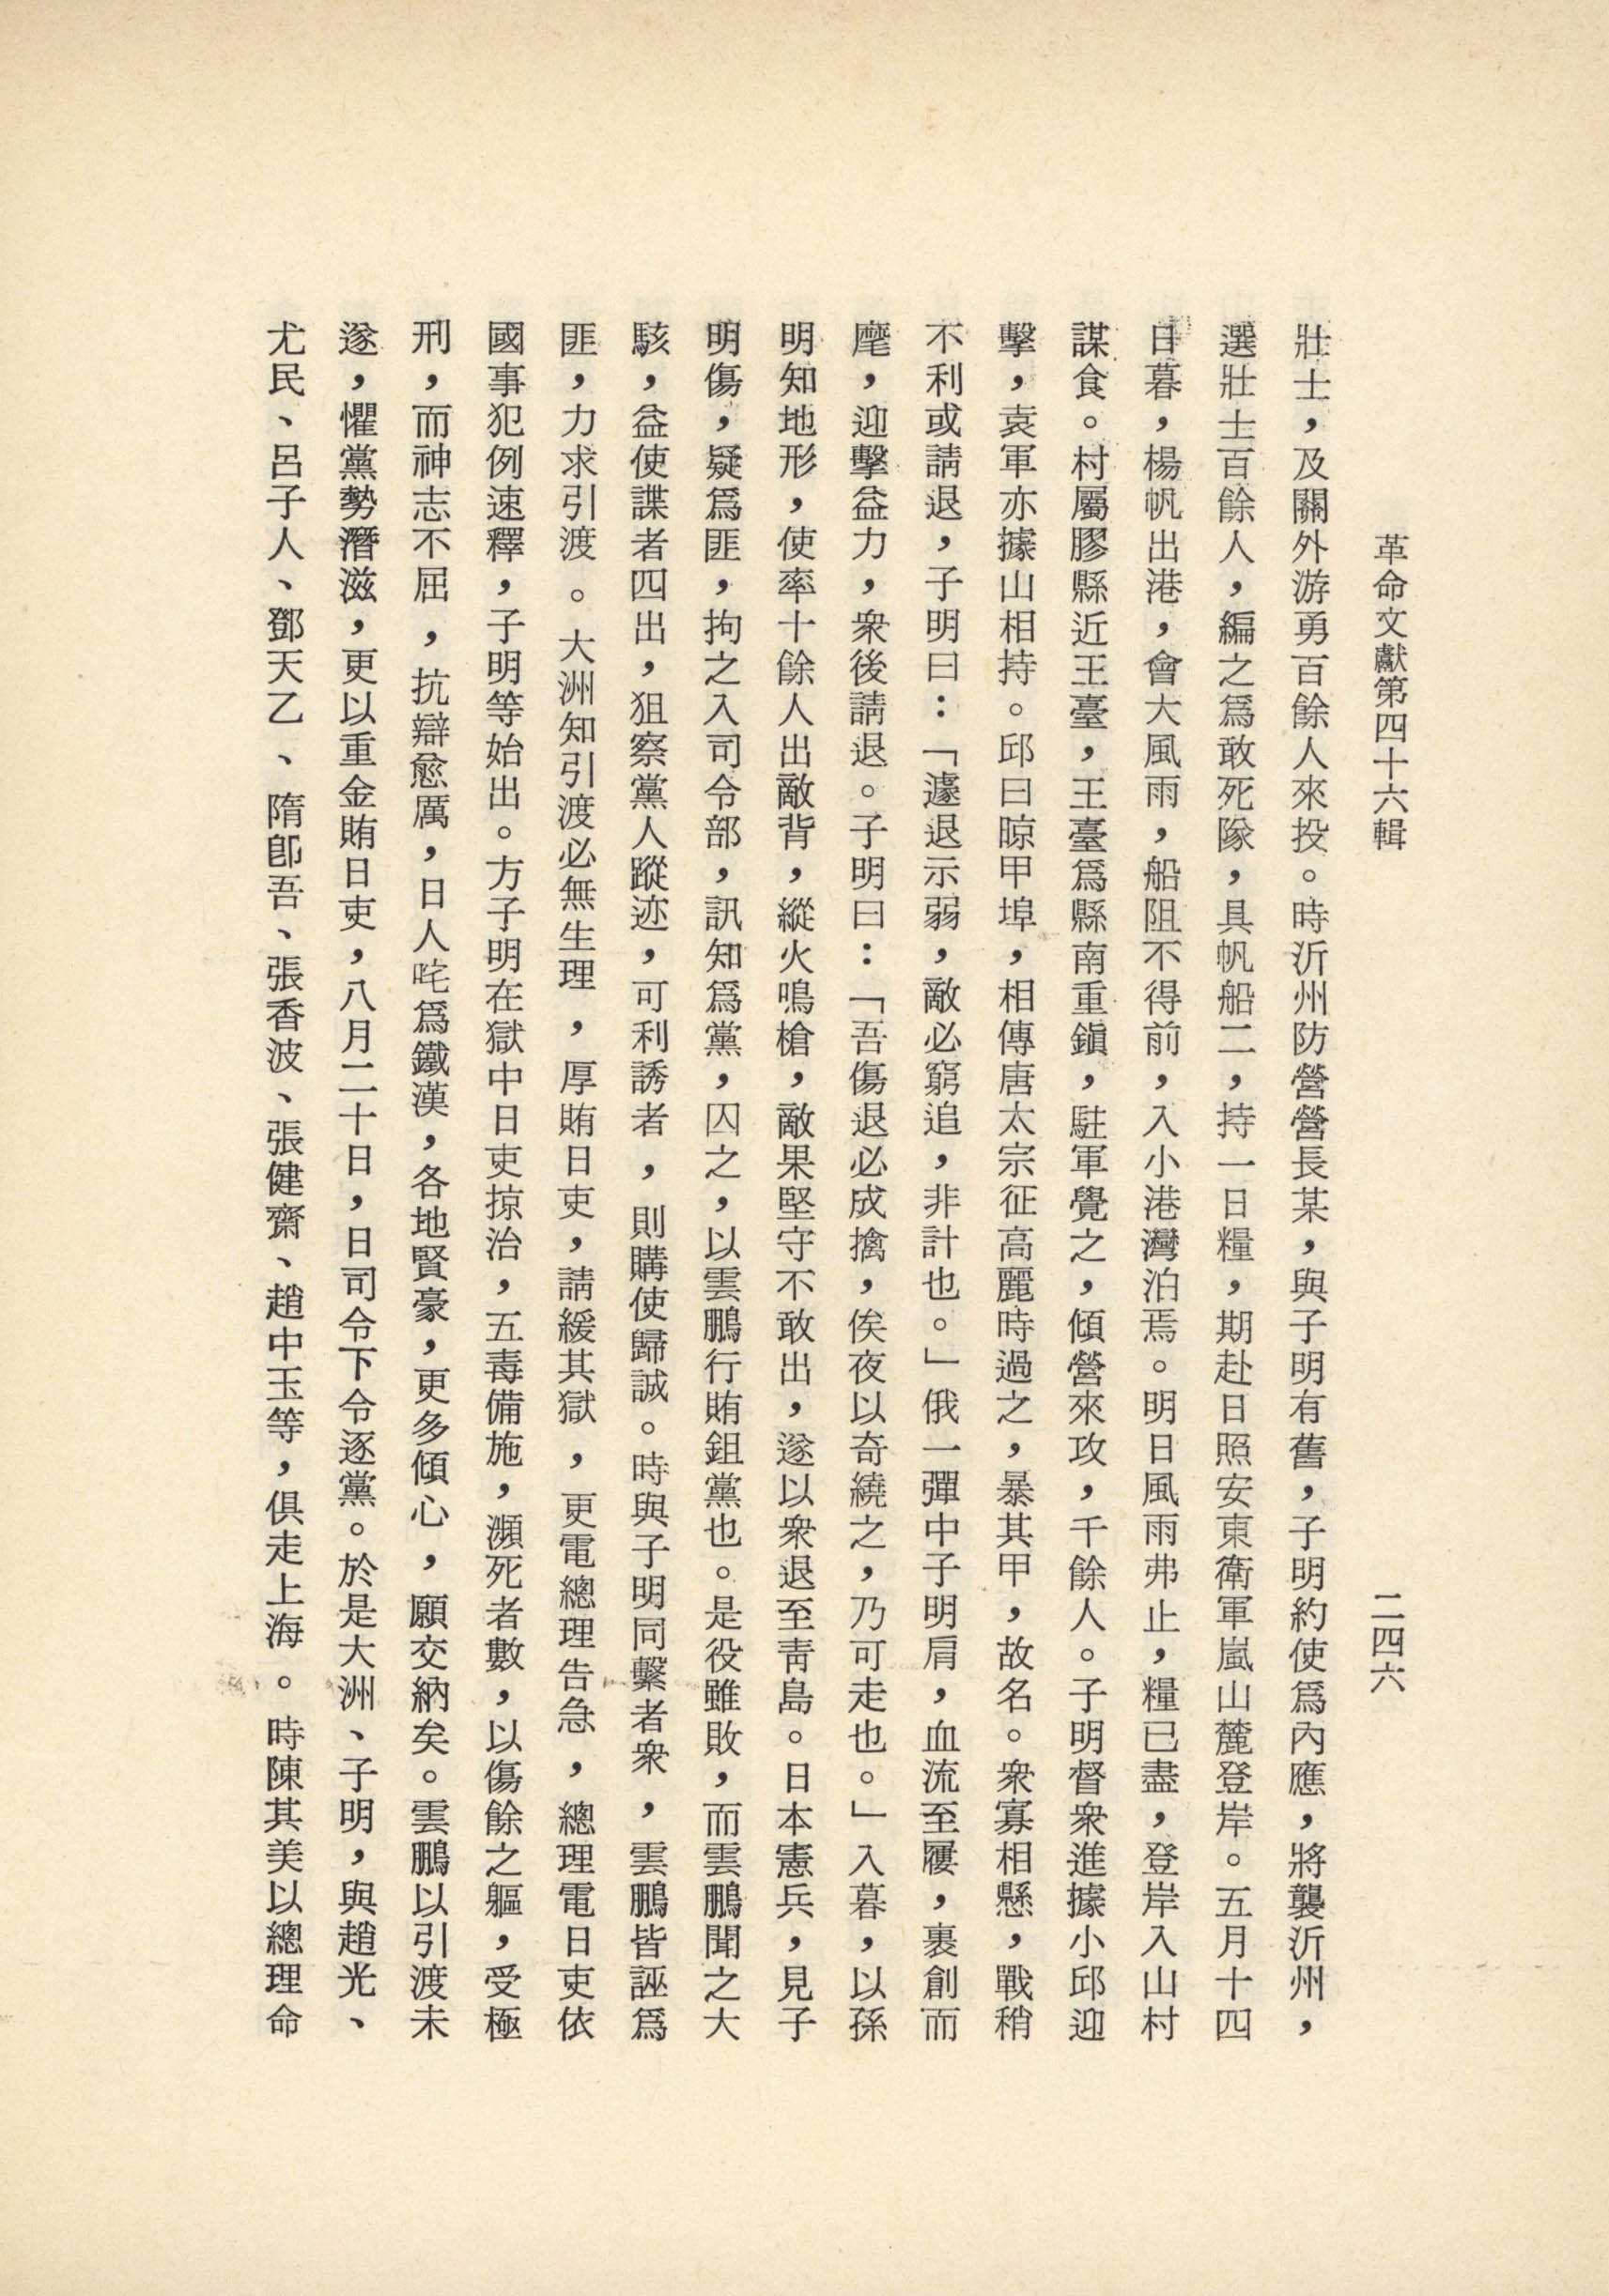 革命文獻第四十六輯
二四六
壯士，及關外游勇百餘人來投。時沂州防營營長某，與子明有舊，子明約使爲內應，將襲沂州，
選壯士百餘人，編之爲敢死隊，具帆船二，持一日糧，期赴日照安東衛軍嵐山麓登岸。五月十四
日暮，楊帆出港，會大風雨，船阻不得前，入小港灣泊焉。明日風雨弗止，糧已盡，登岸入山村
謀食。村屬膠縣近王臺，王臺爲縣南重鎮，駐軍覺之，傾營來攻，千餘人。子明督衆進據小邱迎
擊，袁軍亦據山相持。邱曰晾甲埠，相傳唐太宗征高麗時過之，暴其甲，故名。衆寡相懸，戰稍
不利或請退，子明曰：「遽退示弱，敵必窮追，非計也。」俄一彈中子明肩，血流至屨，裹創而
麾，迎擊益力，衆後請退。子明曰：「吾傷退必成擒，俟夜以奇繞之，乃可走也。」入暮，以孫
明知地形，使率十餘人出敵背，縱火鳴槍，敵果堅守不敢出，遂以衆退至靑島。日本憲兵，見子
明傷，疑爲匪，拘之入司令部，訊知爲黨，囚之，以雲鵬行賄鉏黨也。是役雖敗，而雲鵬聞之大
駭，益使諜者四出，狙察黨人蹤迹，可利誘者，則購使歸誠。時與子明同繫者衆，雲鵬皆誣爲
匪，力求引渡。大洲知引渡必無生理，厚賄日吏，請緩其獄，更電總理告急，總理電日吏依
國事犯例速釋，子明等始出。方子明在獄中日吏掠治，五毒備施，瀕死者數，以傷餘之軀，受極
刑，而神志不屈，抗辯愈厲，日人咤爲鐵漢，各地賢豪，更多傾心，願交納矣。雲鵬以引渡未
遂，懼黨勢潛滋，更以重金賄日吏，八月二十日，日司令下令逐黨。於是大洲、子明，與趙光、
尤民、呂子人、鄧天乙、隋卽吾、張香波、張健齋、趙中玉等，俱走上海。時陳其美以總理命